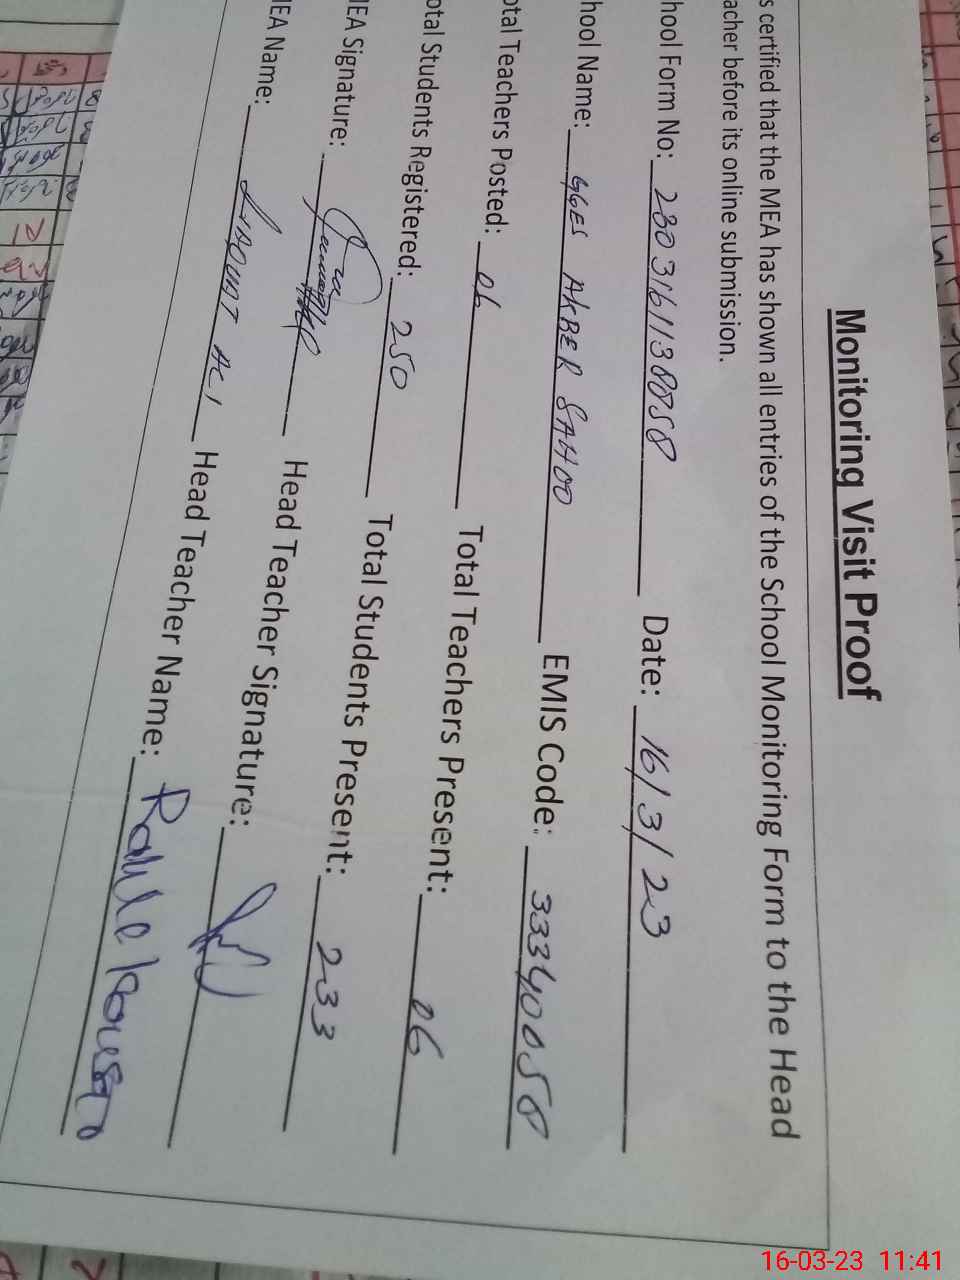 Monitoring Visit Proof
s certified that the MEA has shown all entries of the School Monitoring Form to the Head
acher before its online submission.
hool Form No: 2303161138058 Date: 16/3/23
hool Name: GGES AKBER SAHOO EMIS Code: 33340058
otal Teachers Posted: 06 Total Teachers Present: 06
otal Students Registered: 250 Total Students Present: 233
MEA Signature: Head Teacher Signature:
MEA Name: LIAQUAT ALI Head Teacher Name:
16-03-23 11:41